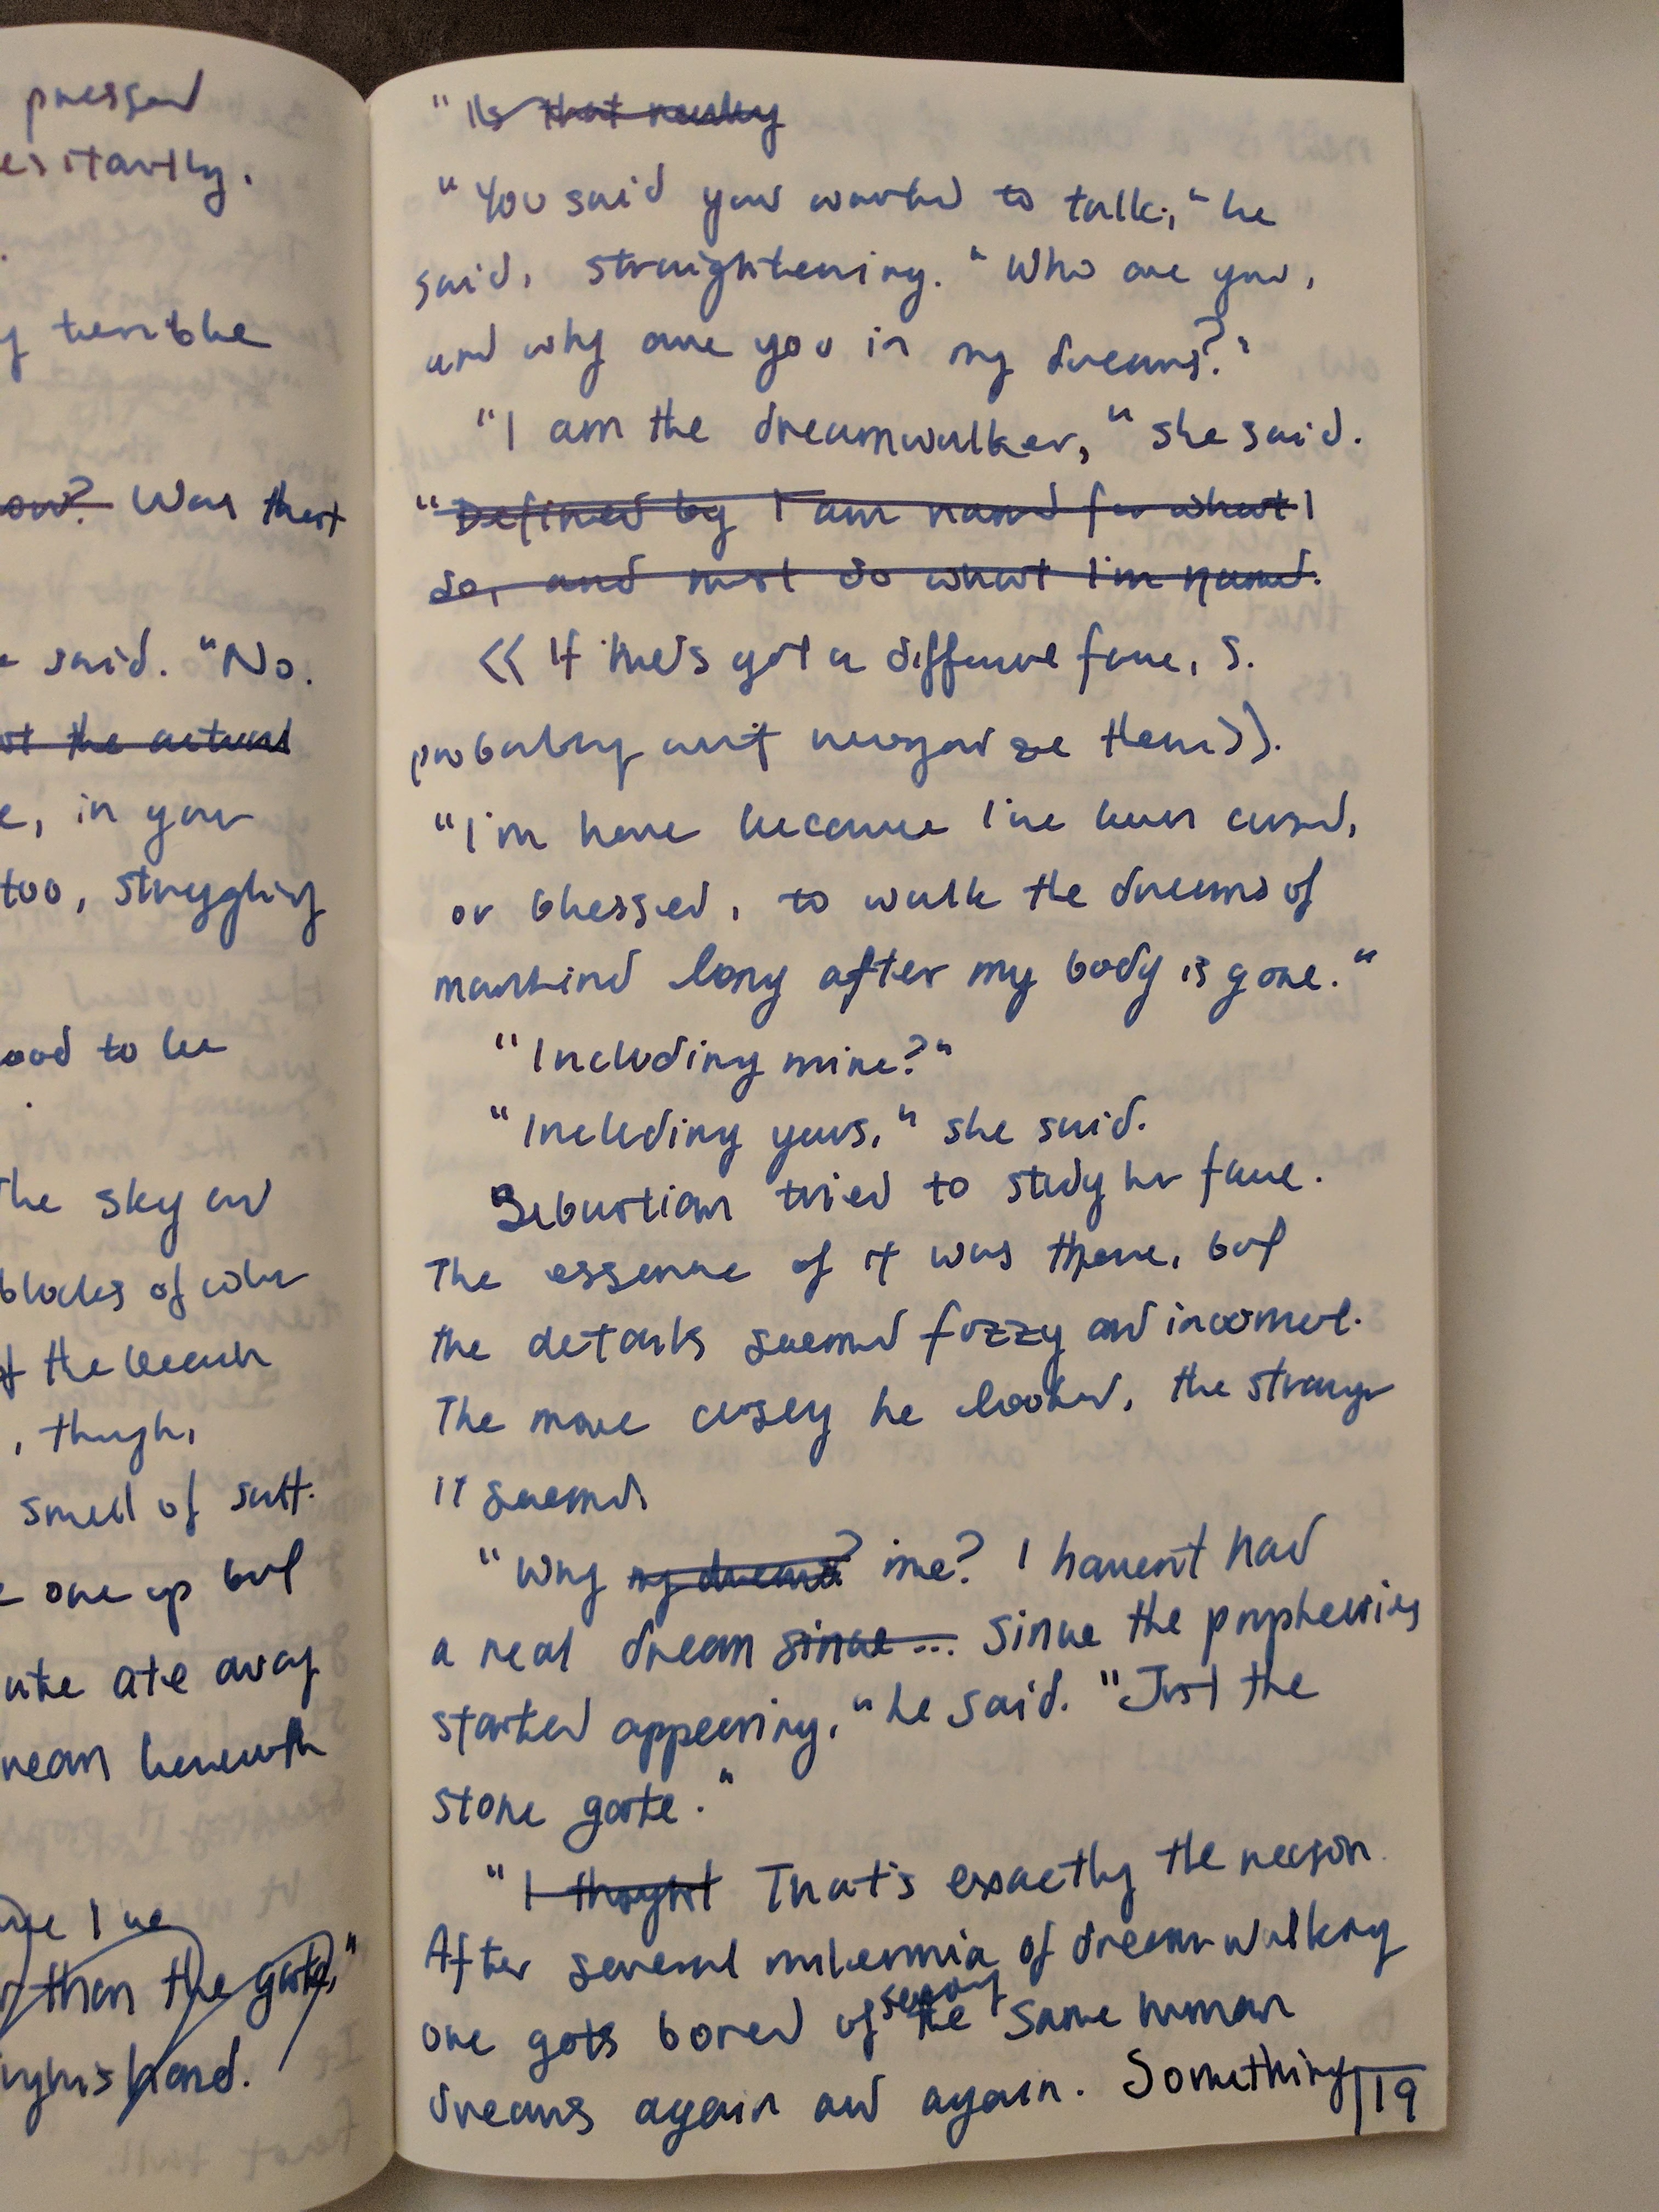 pressed
esitantly.
y terrible
ow? Was that
e said. "No.
ot the actual
e, in your
too, struggling
ood to be
The sky and
blocks of color
of the beach
, though,
smell of salt.
e one up but
ate away
ream beneath
I've
than the gate,"
his hand.
"Is that really
"You said you wanted to talk," he
said, straightening. "Who are you,
and why are you in my dreams?"
"I am the dreamwalker," she said.
"Defined by I am named for what I
do, and must do what I'm named.
<< If he's got a different face, S.
probably won't recognize them>>.
"I'm here because I've been cursed,
or blessed, to walk the dreams of
mankind long after my body is gone."
"Including mine?"
"Including yours," she said.
Sebastian tried to study her face.
The essence of it was there, but
the details seemed fuzzy and incorrect.
The more closely he looked, the stranger
it seemed.
"Why my dreams? me? I haven't had
a real dream since... since the prophecies
started appearing," he said. "Just the
stone gate."
"I thought That's exactly the reason.
After several millennia of dreamwalking
one gets bored of seeing the same human
dreams again and again. Something
119